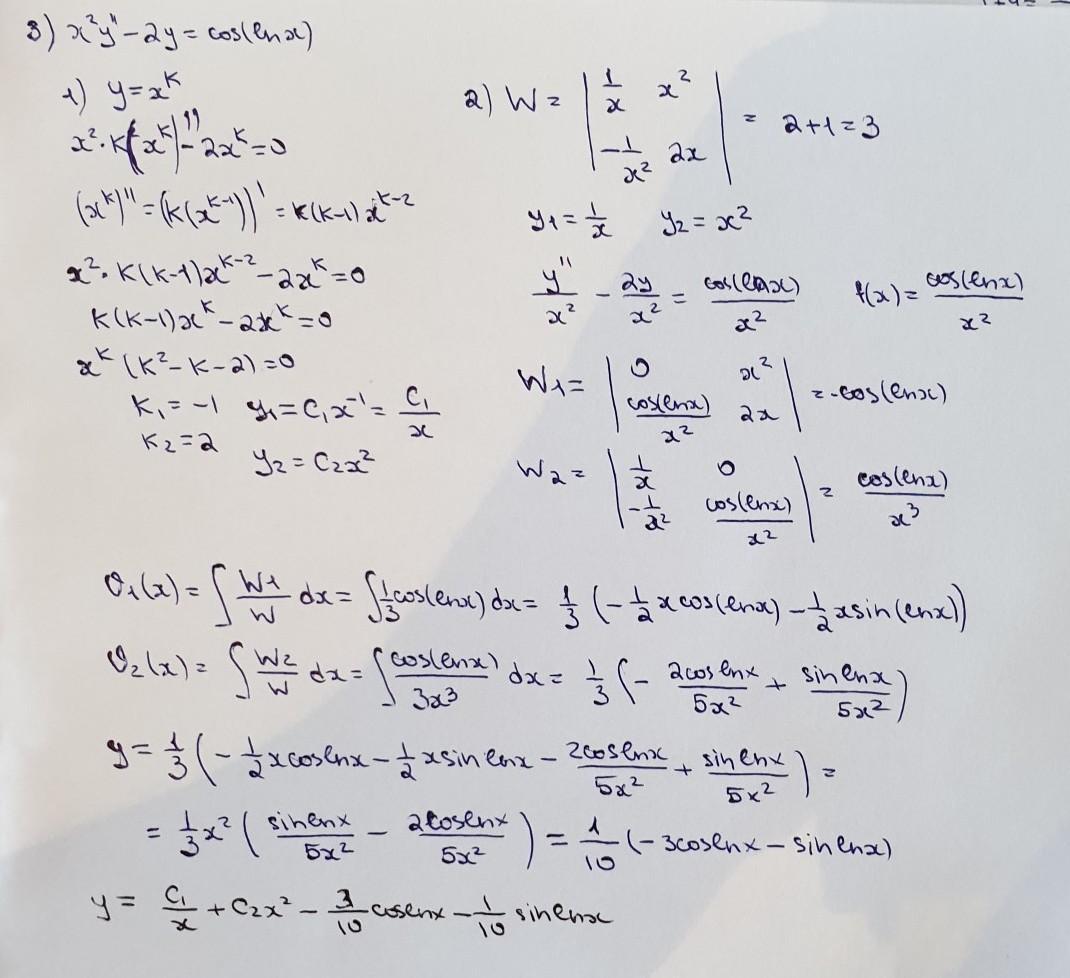 3) x²y" - 2y = cos(lnx)
1) y = x^k
x²·k(x^k)" - 2x^k = 0
(x^k)" = (k(x^(k-1)))' = k(k-1)x^(k-2)
x²·k(k-1)x^(k-2) - 2x^k = 0
k(k-1)x^k - 2x^k = 0
x^k (k² - k - 2) = 0
k₁ = -1 y₁ = C₁x⁻¹ = C₁/x
k₂ = 2
y₂ = C₂x²
2) W = | 1/x x² |
| -1/x² 2x | = 2+1 = 3
y₁ = 1/x y₂ = x²
y"/x² - 2y/x² = cos(lnx)/x² f(x) = cos(lnx)/x²
W₁ = | 0 x² |
| cos(lnx)/x² 2x | = -cos(lnx)
W₂ = | 1/x 0 |
| -1/x² cos(lnx)/x² | = cos(lnx)/x³
υ₁(x) = ∫ W₁/W dx = ∫ 1/3 cos(lnx) dx = 1/3 (-1/2 x cos(lnx) - 1/2 x sin(lnx))
υ₂(x) = ∫ W₂/W dx = ∫ cos(lnx)/3x³ dx = 1/3 (- 2cos lnx/5x² + sin lnx/5x²)
y = 1/3 (-1/2 x cos lnx - 1/2 x sin lnx - 2cos lnx/5x² + sin lnx/5x²) =
= 1/3 x² (sin lnx/5x² - 2cos lnx/5x²) = 1/10 (-3cos lnx - sin lnx)
y = C₁/x + C₂x² - 3/10 cos lnx - 1/10 sin lnx